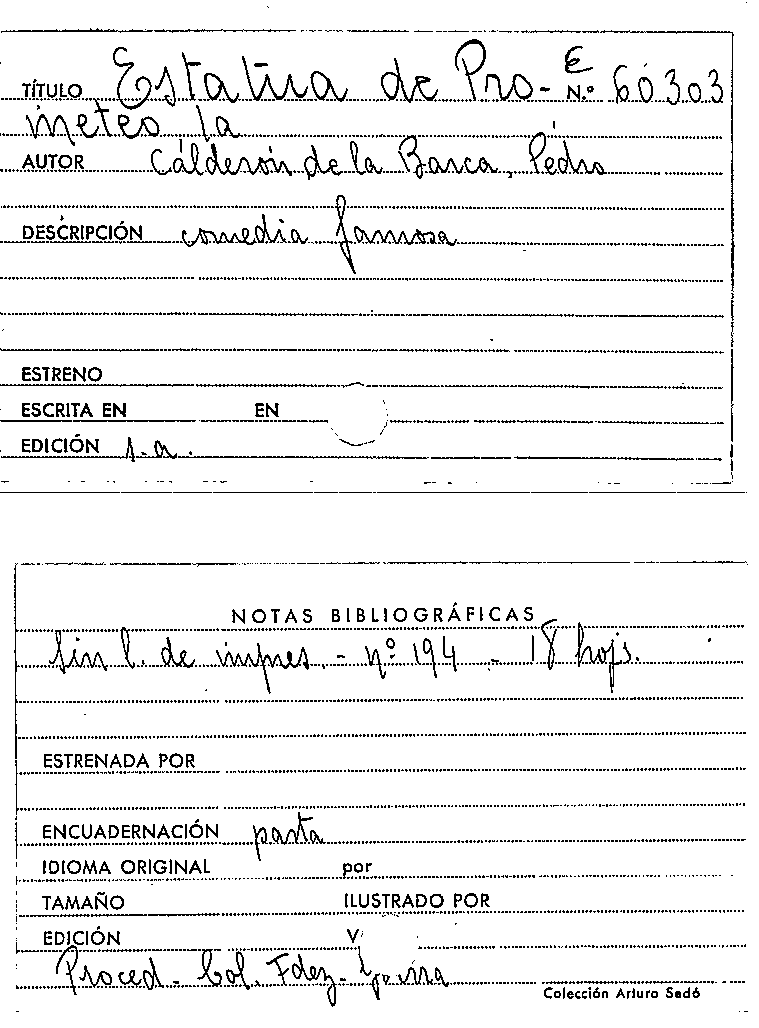 TÍTULO Estatua de Pro- E N.º 60303
meteo, la
AUTOR Calderón de la Barca, Pedro
DESCRIPCIÓN comedia famosa
ESTRENO
ESCRITA EN EN
EDICIÓN s.a.
NOTAS BIBLIOGRÁFICAS
Sin l. de impres. - nº 194 - 18 hojs.
ESTRENADA POR
ENCUADERNACIÓN pasta
IDIOMA ORIGINAL por
TAMAÑO ILUSTRADO POR
EDICIÓN V
Proced. Col. Fdez-
Colección Arturo Sedó